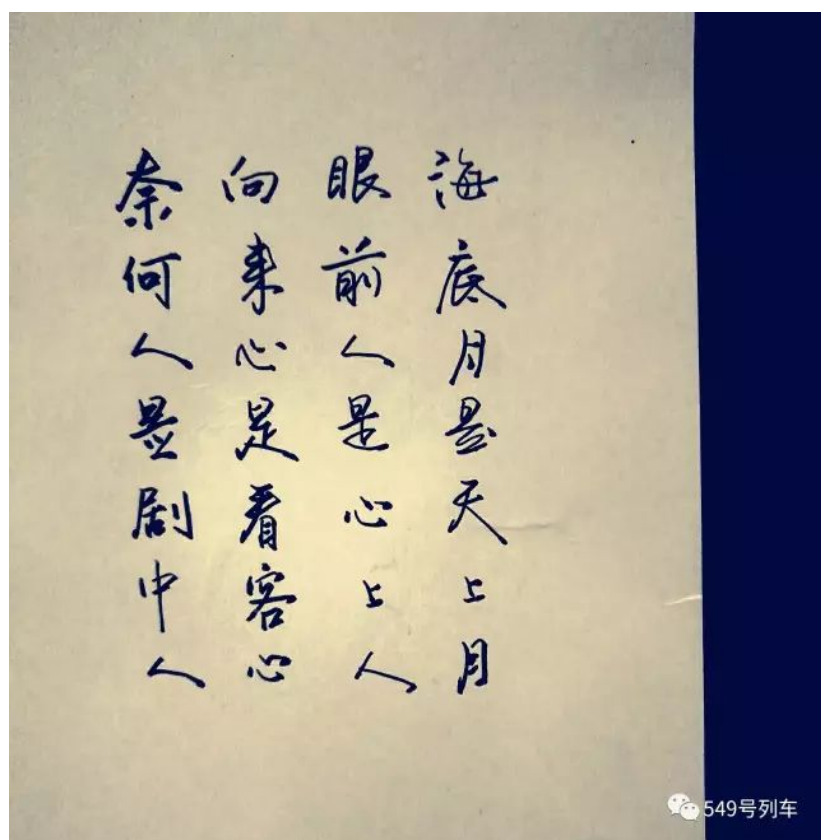 海底月是天上月
眼前人是心上人
向来心是看客心
奈何人是剧中人
549号列车